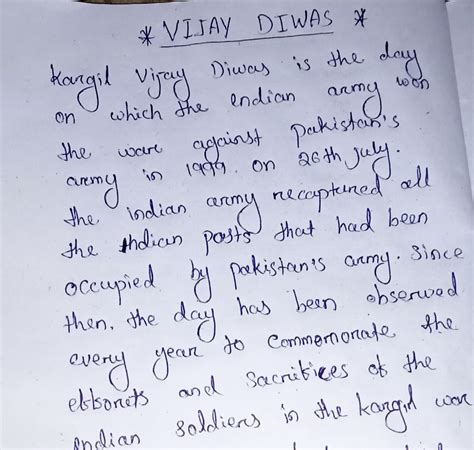 * VIJAY DIWAS *
Kargil Vijay Diwas is the day
on which the endian army won
the ware against pakistan's
army in 1999. on 26th July.
the indian army recaptured all
the Indian posts that had been
occupied by pakistan's army. Since
then, the day has been observed
every year to Commemorate the
ebbonets and Sacribices ob the
endian soldiers in the kargil war